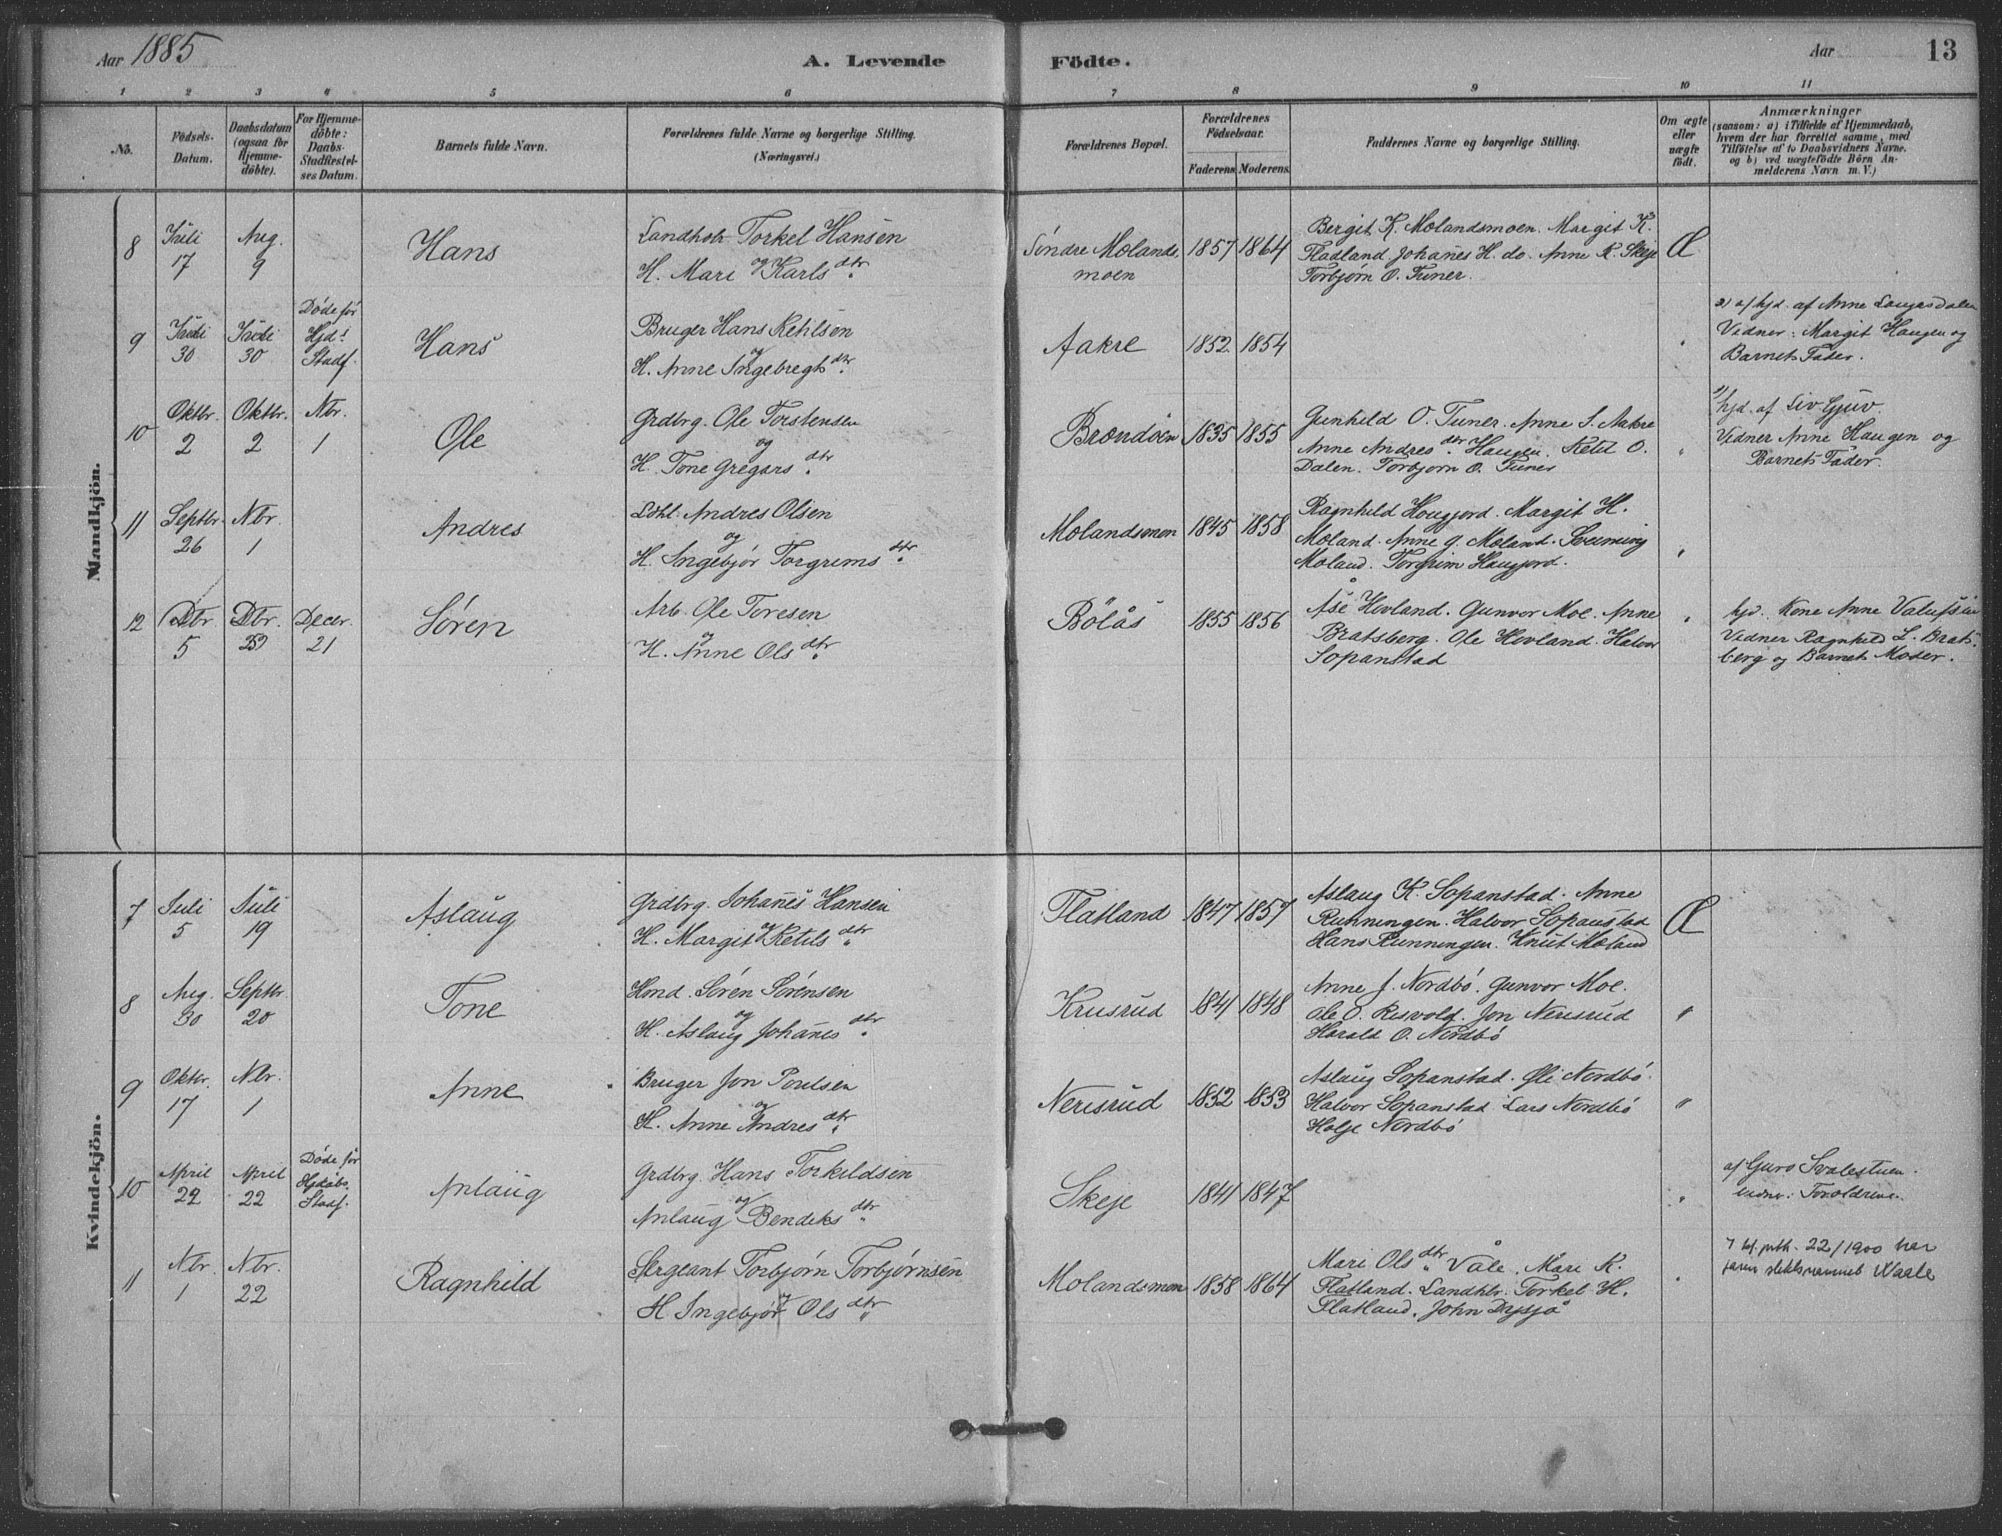 Aar 1885
A. Levende
Födte.
Aar
13
1 2 3 4 5 6 7 8 9 10 11
No.
Födsels-
Datum.
Daabsdatum
(ogsaa for
Hjemme-
döbte).
For Hjemme-
döbte:
Daabs-
Stadfæstel-
ses Datum.
Barnets fulde Navn.
Forældrenes fulde Navne og borgerlige Stilling.
(Næringsvei.)
Forældrenes Bopæl.
Forældrenes
Födselsaar.
Faderens. Moderens.
Faddernes Navne og borgerlige Stilling.
Om ægte
eller
uægte
födt.
Anmærkninger
(saasom: a) i Tilfælde af Hjemmedaab,
hvem der har forrettet samme, med
Tilföielse af to Daabsvidners Navne.
og b) ved uægtefödte Börn An-
melderens Navn m. V.)
Mandkjön.
8
Juli
17
Aug.
9
Hans
Landhdr. Torkel Hansen
og
H. Mari Karls dtr.
Söndre Molands
moen
1857 1864
Bergit K. Molandsmoen. Margit K.
Fladland. Johanes H. do. Anne K. Skeje
Torbjørn O. Tuner.
Æ
9
Juli
30
Juli
30
Døde før
Hjd.
Stadf.
Hans
Bruger Hans Ketilsen
og
H. Anne Ingebregts dtr.
Aakre
1852. 1854
"
a) hjd. af Anne Laugesdalen
Vidner: Margit Haugen og
Barnets Fader.
10
Oktbr.
2
Oktbr.
2
Nbr.
1
Ole
Grdbrg. Ole Torstensen
og
H. Tone Gregars dtr.
Brændöen
1835 1855
Gunhild O. Tuner. Anne S. Aakre
Anne Andres dtr. Haugen. Ketil O.
Dalen. Torbjørn O. Tuner
"
hjd. af Liv Gjuv.
Vidner Anne Haugen og
Barnets Fader.
11
Septbr.
26
Nbr.
1
Andres
Andres Olsen
og
H. Ingebjør Torgrims dtr.
Molandsmoen
1845 1858
Ragnhild Haugjord. Margit H.
Moland. Anne G. Moland. Sveinung
Moland. Torgrim Haugjord.
"
12
Obr.
5
Søren
Decer.
21
Arb. Ole Toresen
og
H. Anne Ols dtr.
Bölås
1855 1856
Åse Hovland. Gunvor Moe. Anne
Bratsberg. Ole Hovland. Halvor
Sopanstad
"
hjd. Kone Anne
Vidner Ragnhild L. Brats-
berg og Barnets Moder.
Kvindekjön.
7
Juli
5
Juli
19
Aslaug
Grdbrg. Johanes Hansen
og
H. Margit Ketils dtr.
Flatland
1847 1857
Aslaug K. Sopanstad. Anne
Runningen. Halvor Sopanstad
Hans Runningen. Knut Moland
Æ
8
Aug.
30
Septbr.
20
Tone
Hmd. Søren Sørensen
og
H. Aslaug Johanes dtr.
Krusrud
1841 1848
Anne J. Nordbö. Gunvor Moe.
Ole O. Risvold. Jon Nerisrud
Harald O. Nordbö
"
9
Oktbr.
17
Nbr.
1
Anne
Bruger Jon Poulsen
og
H. Anne Andres dtr.
Nerisrud
1852 1853
Aslaug Sopanstad. Oli Nordbö.
Halvor Sopanstad Lars Nordbö
Holje Nordbö
"
10
April
22
April
22
Døde før
Hjdaabs
Stadf.
Anlaug
Grdbrg. Hans Torkildsen
og
Anlaug Bendiks dtr.
Skeje
1841 1847
"
af Guro Svalestuen.
vidner: Foreldrene.
11
Nbr.
1
Nbr.
22
Ragnhild
Sergeant Torbjørn Torbjørnsen
og
H Ingebjør Ols dtr.
Molandsmoen
1858 1864
Mari Ols dtr. Våle. Mari K.
Flatland. Landhdr. Torkel H.
Flatland. John Dysjå
"
22/1900 har
faren slektsnavnet Waale